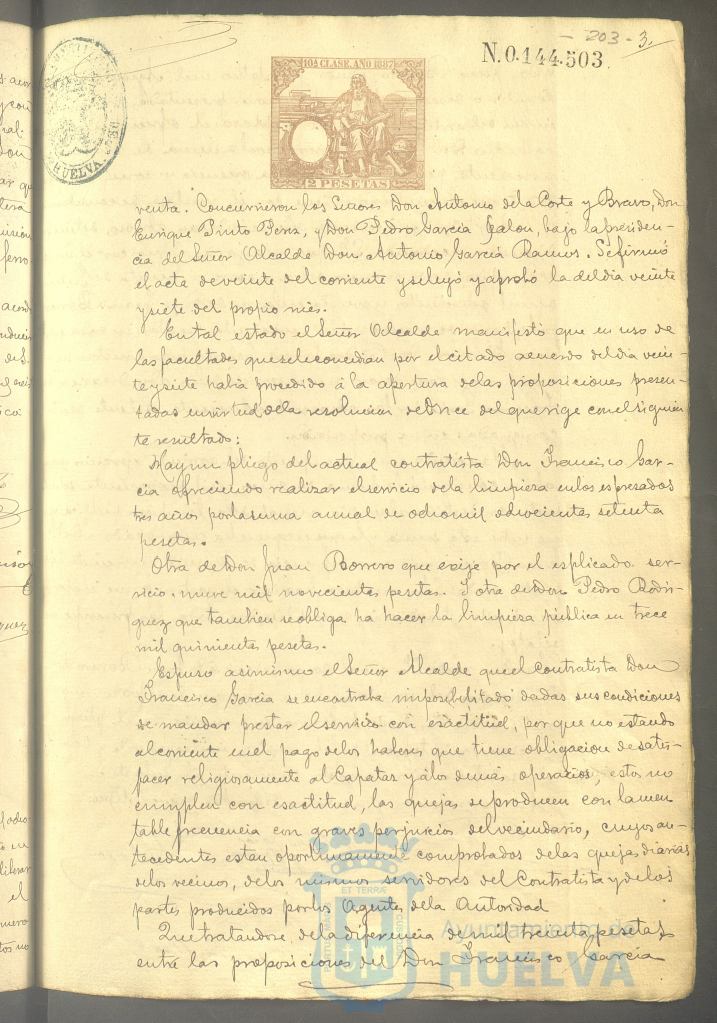 - 203 - 3.
N.0.144.503
10ª CLASE. AÑO 1887
2 PESETAS
HUELVA
venta. Concurrieron los Señores Don Antonio de la Corte y Bravo, Don
Enrique Pinto Perez, y Don Pedro Garcia Jalon, bajo la presiden-
cia del Señor Alcalde Don Antonio García Ramos. Se firmó
el acta de veinte del corriente y se leyó y aprobó la del dia veinte
y siete del propio mes.
En tal estado el Señor Alcalde manifestó que en uso de
las facultades que se le concedian por el citado acuerdo del dia vein-
te y siete habia procedido á la apertura de las proposiciones presen-
tadas en virtud de la resolucion de Once del que rige con el siguien
te resultado:
Hay un pliego del actual contratista Don Francisco Gar-
cia ofreciendo realizar el servicio de la limpieza en los espresados
tres años por la suma anual de ocho mil doscientas setenta
pesetas.
Otra de Don Juan Borrero que exije por el esplicado ser-
vicio nueve mil novecientas pesetas. I otra de Don Pedro Rodri-
guez que tambien se obliga ha hacer la limpieza pública en trece
mil quinientas pesetas.
Espuso asimismo el Señor Alcalde que el contratista Don
Francisco Garcia se encontraba imposibilitado dadas sus condiciones
de mandar prestar el servicio con exactitud, por que no estando
al corriente en el pago de los haberes que tiene obligacion de satis-
facer religiosamente al Capataz y á los demás operarios, estos no
cumplen con esactitud, las quejas se producen con lamen
table frecuencia con graves perjuicios del vecindario, cuyos an-
tecedentes estan oportunamente comprobados de las quejas diarias
de los vecinos, de los mismos servidores del Contratista y de los
partes producidos por los Agentes de la Autoridad
Que tratandose de la diferencia de mil treinta pesetas
entre las proposiciones del Don Francisco García
Ayuntamiento de
HUELVA